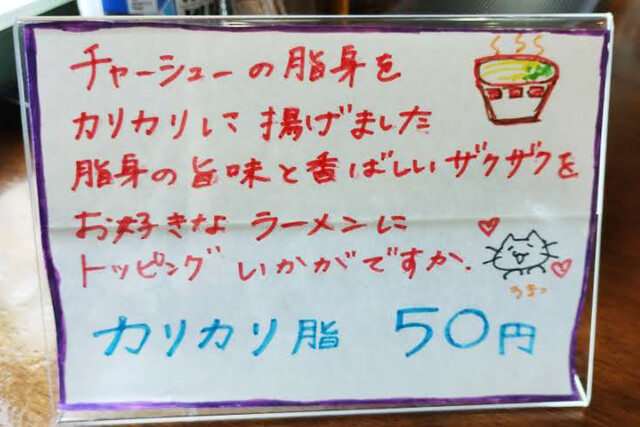 チャーシューの脂身を
カリカリに揚げました
脂身の旨味と香ばしいザクザクを
お好きなラーメンに
トッピングいかがですか.
うまっ
カリカリ脂 50円